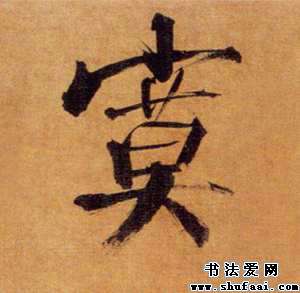 寞
书法爱网
www.shufaai.com